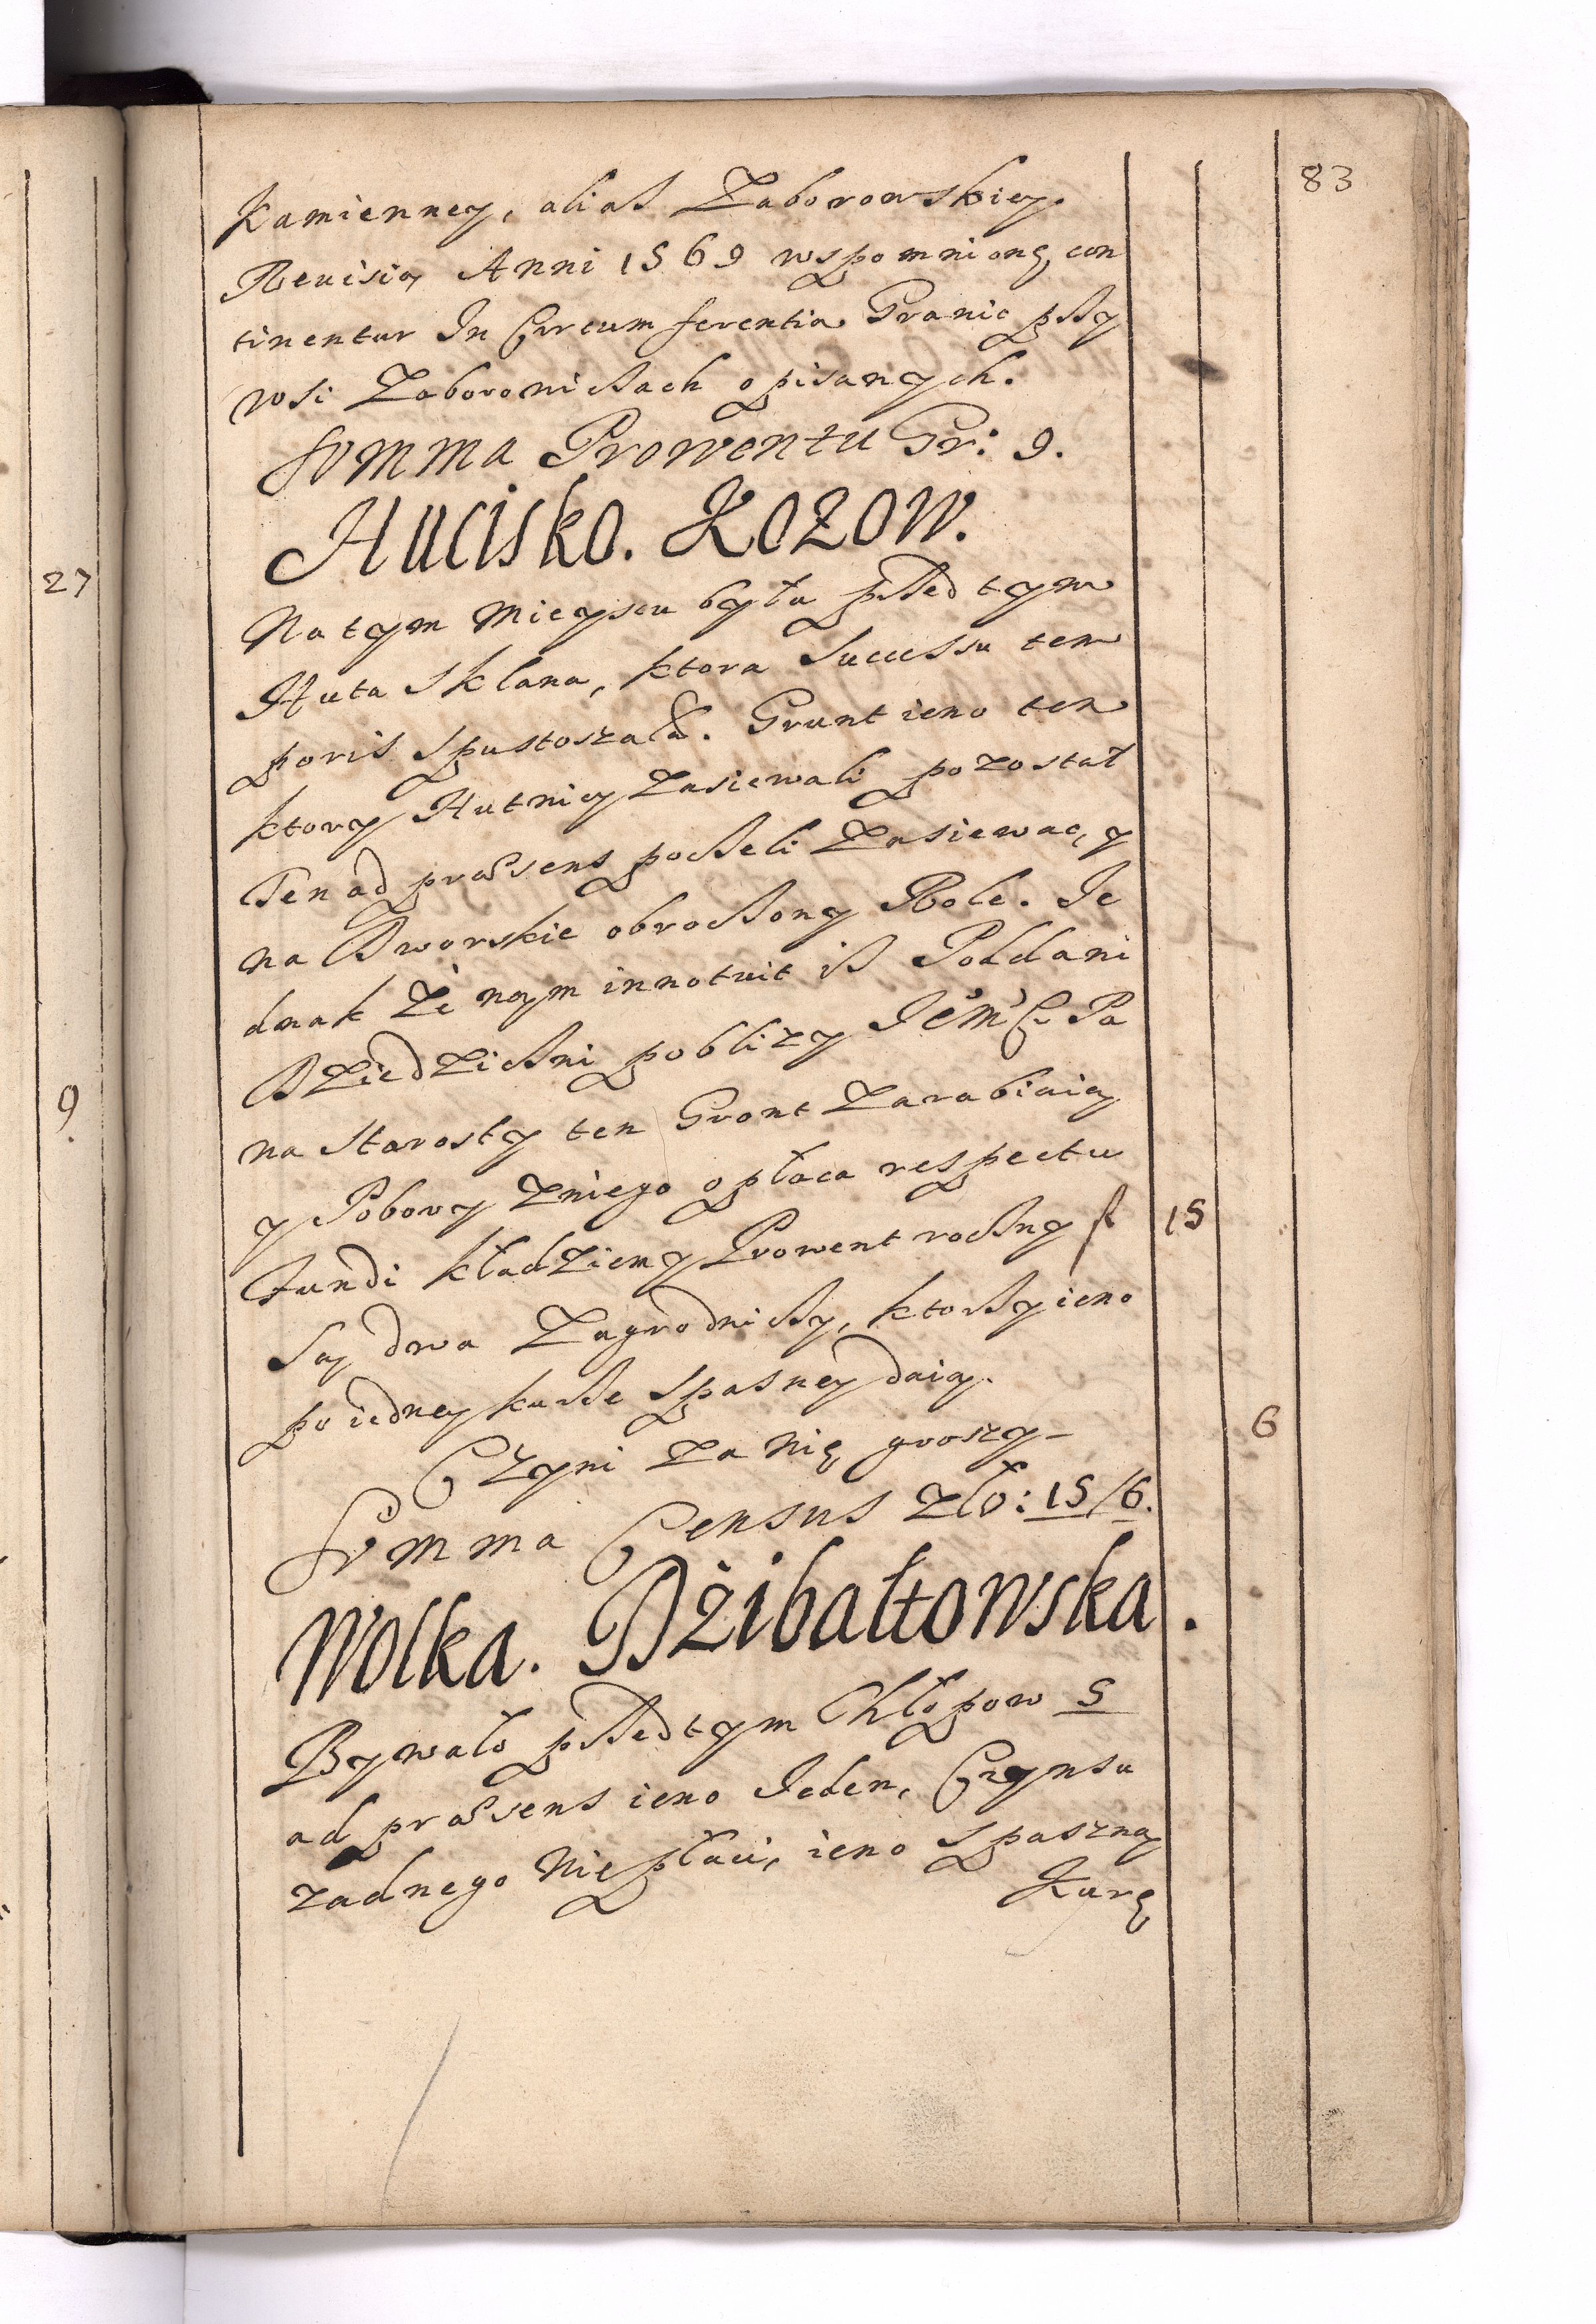 83
Kamienney, alias Zaborowskiey.
Reuisią Anni 1569 wspomnionę con
tinentur In Circumferentia Granic przy
wsi Zaboroniczach opisanych.
Summa Prowentu Gr: 9.
Hucisko. Kozow.
Na tym Mieyscu była przed tym
Huta Sklana, ktora Successu tem
poris Spustoszała. Grunt ieno ten
ktory Hutnicy Zasiewali pozostał
Ten ad præsens poczeli Zasiewac, y
na Dworskie obroczony Role. Je
dnak Ze nąm innotuit isz Poddani
Dziedziczni poblizy Jem̃ C Pa
na Starosty ten Gront Zarabiaią
y Pobory Zniego opłaca respectu
Fundi kładziemy Prowent roczny f 15
Są dwa Zagrodniczy, ktorzy ieno
po iedney kurze Spasney daią.
Czyni za nię groszy - 6
Summa Census Zło: 15/6.
Wolka. Dżibałtowska.
Bywało przedtym Chłopow 5
ad præsens ieno Jeden, Czynsu
zadnego Niepłaci, ieno Spaszną
Kurę
27
9.